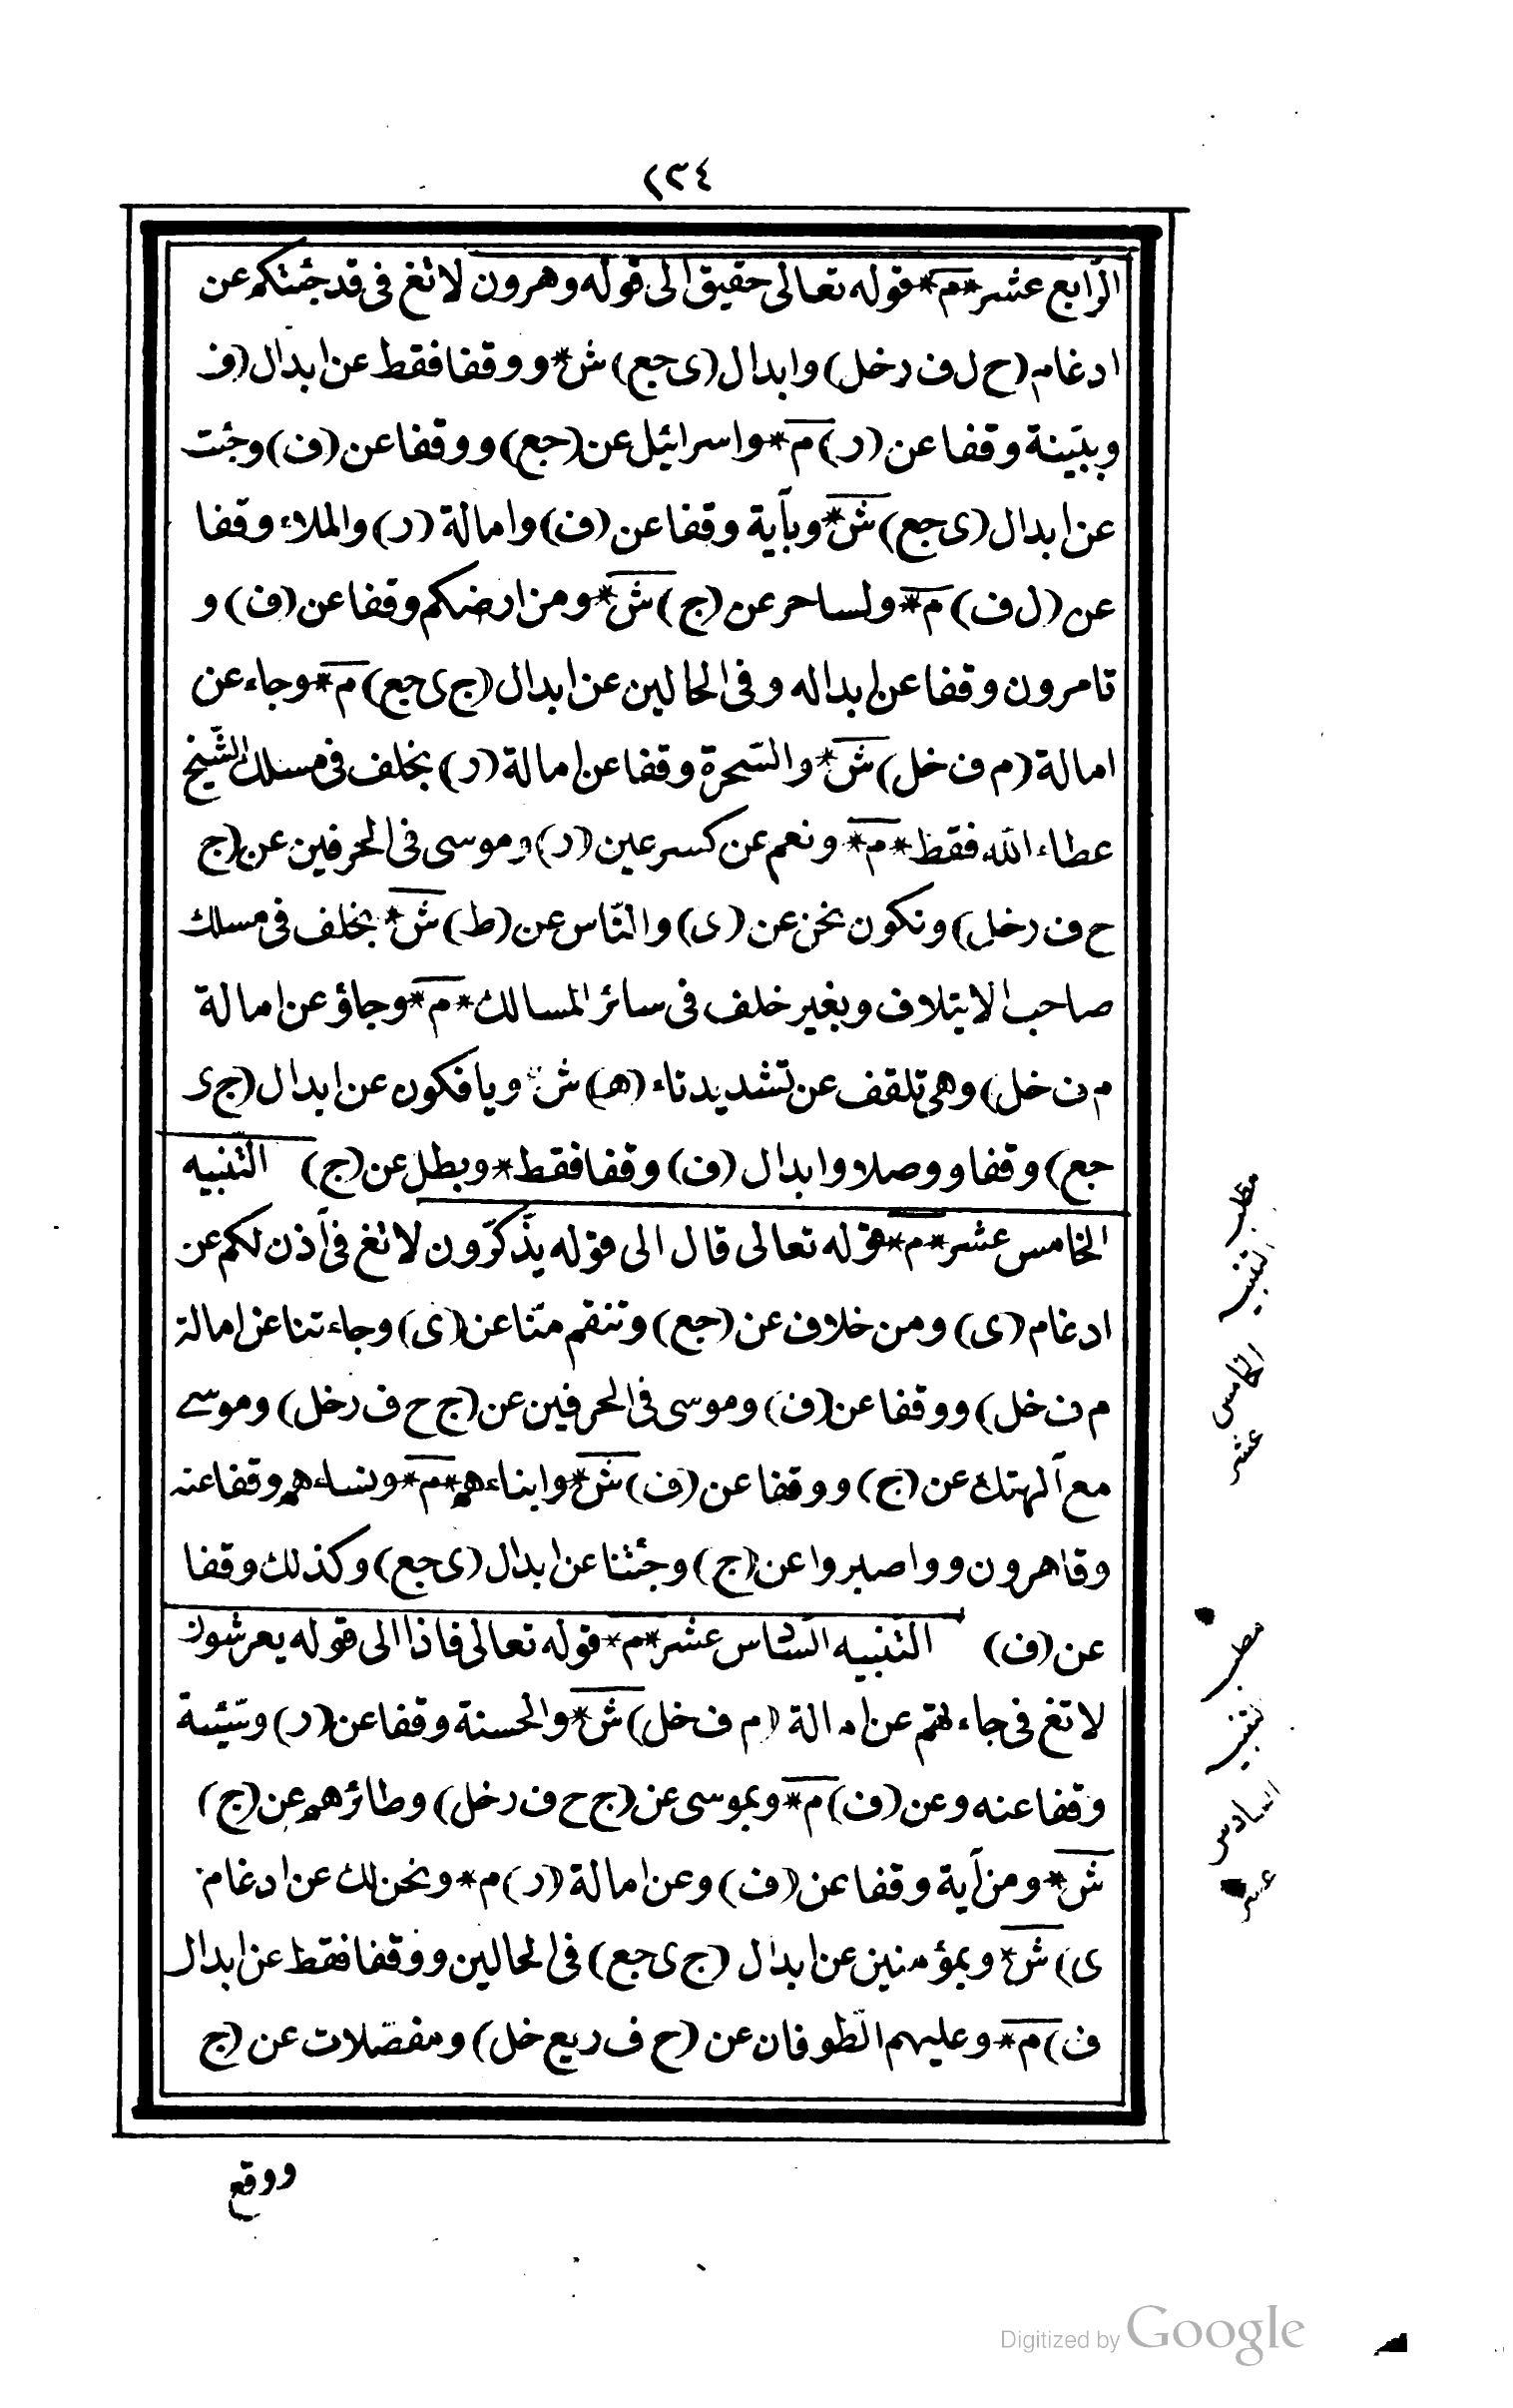 ١٣٤
الرابع عشر *م* قوله تعالى حقيق الى قوله وهرون لا تغ فى قد جئتكم عن
ادغام (ح ل ف رخل) وابدال (ى جع) ش* ووقفا فقط عن ابدال (ف
وببينة وقفا عن (ر) م* واسرائيل عن (جع) ووقفا عن (ف) وجئت
عن ابدال (ى جع) ش* وبآية وقفا عن (ف) وامالة (ر) والملاء وقفا
عن (ل ف) م* ولساحر عن (ج) ش* ومن ارضكم وقفا عن (ف) و
تامرون وقفا عن ابداله وفى الحالين عن ابدال (ج ى جع) م* وجاء عن
امالة (م ف خل) ش* والسّحرة وقفا عن امالة (ر) بخلف فى مسلك الشّيخ
عطاء الله فقط *م* ونعم عن كسر عين (ر) وموسى فى الحرفين عن (ج
ح ف رخل) ونكون نحن عن (ى) والنّاس عن (ط) ش* بخلف فى مسلك
صاحب الايتلاف وبغير خلف فى سائر المسالك *م* وجاؤ عن امالة
م ف خل) وهى تلقف عن تشديد تاء (هـ) ش* ويافكون عن ابدال (ج ى
جع) وقفا ووصلا وابدال (ف) وقفا فقط* وبطل عن (ج) التّنبيه
الخامس عشر *م* قوله تعالى قال الى قوله يذّكرّون لا تغ فى آذن لكم عن
ادغام (ى) ومن خلاف عن (جع) وتنقم منّا عن (ى) وجاءتنا عن امالة
م ف خل) ووقفا عن (ف) وموسى فى الحرفين عن (ج ح ف رخل) وموسى
مع آلهتك عن (ج) ووقفا عن (ف) ش* وابناءهم *م* ونساءهم وقفا عنه
وقاهرون وواصبروا عن (ج) وجئتنا عن ابدال (ى جع) وكذلك وقفا
عن (ف) التّنبيه السّادس عشر *م* قوله تعالى فاذا الى قوله يعرشون
لا تغ فى جاءتهم عن امالة (م ف خل) ش* والحسنة وقفا عن (ر) وسيّئة
وقفا عنه وعن (ف) م* وبموسى عن (ج ح ف رخل) وطائرهم عن (ج)
ش* ومن آية وقفا عن (ف) وعن امالة (ر) م* ونحن لك عن ادغام
ى) ش* وبمؤمنين عن ابدال (ج ى جع) فى الحالين ووقفا فقط عن ابدال
ف) م* وعليهم الطّوفان عن (ح ف ريع خل) ومفصّلات عن (ج
ووقع
مطلب
التنبيه
الخامس
عشر
مطلب
التنبيه
السادس
عشر
Digitized by Google